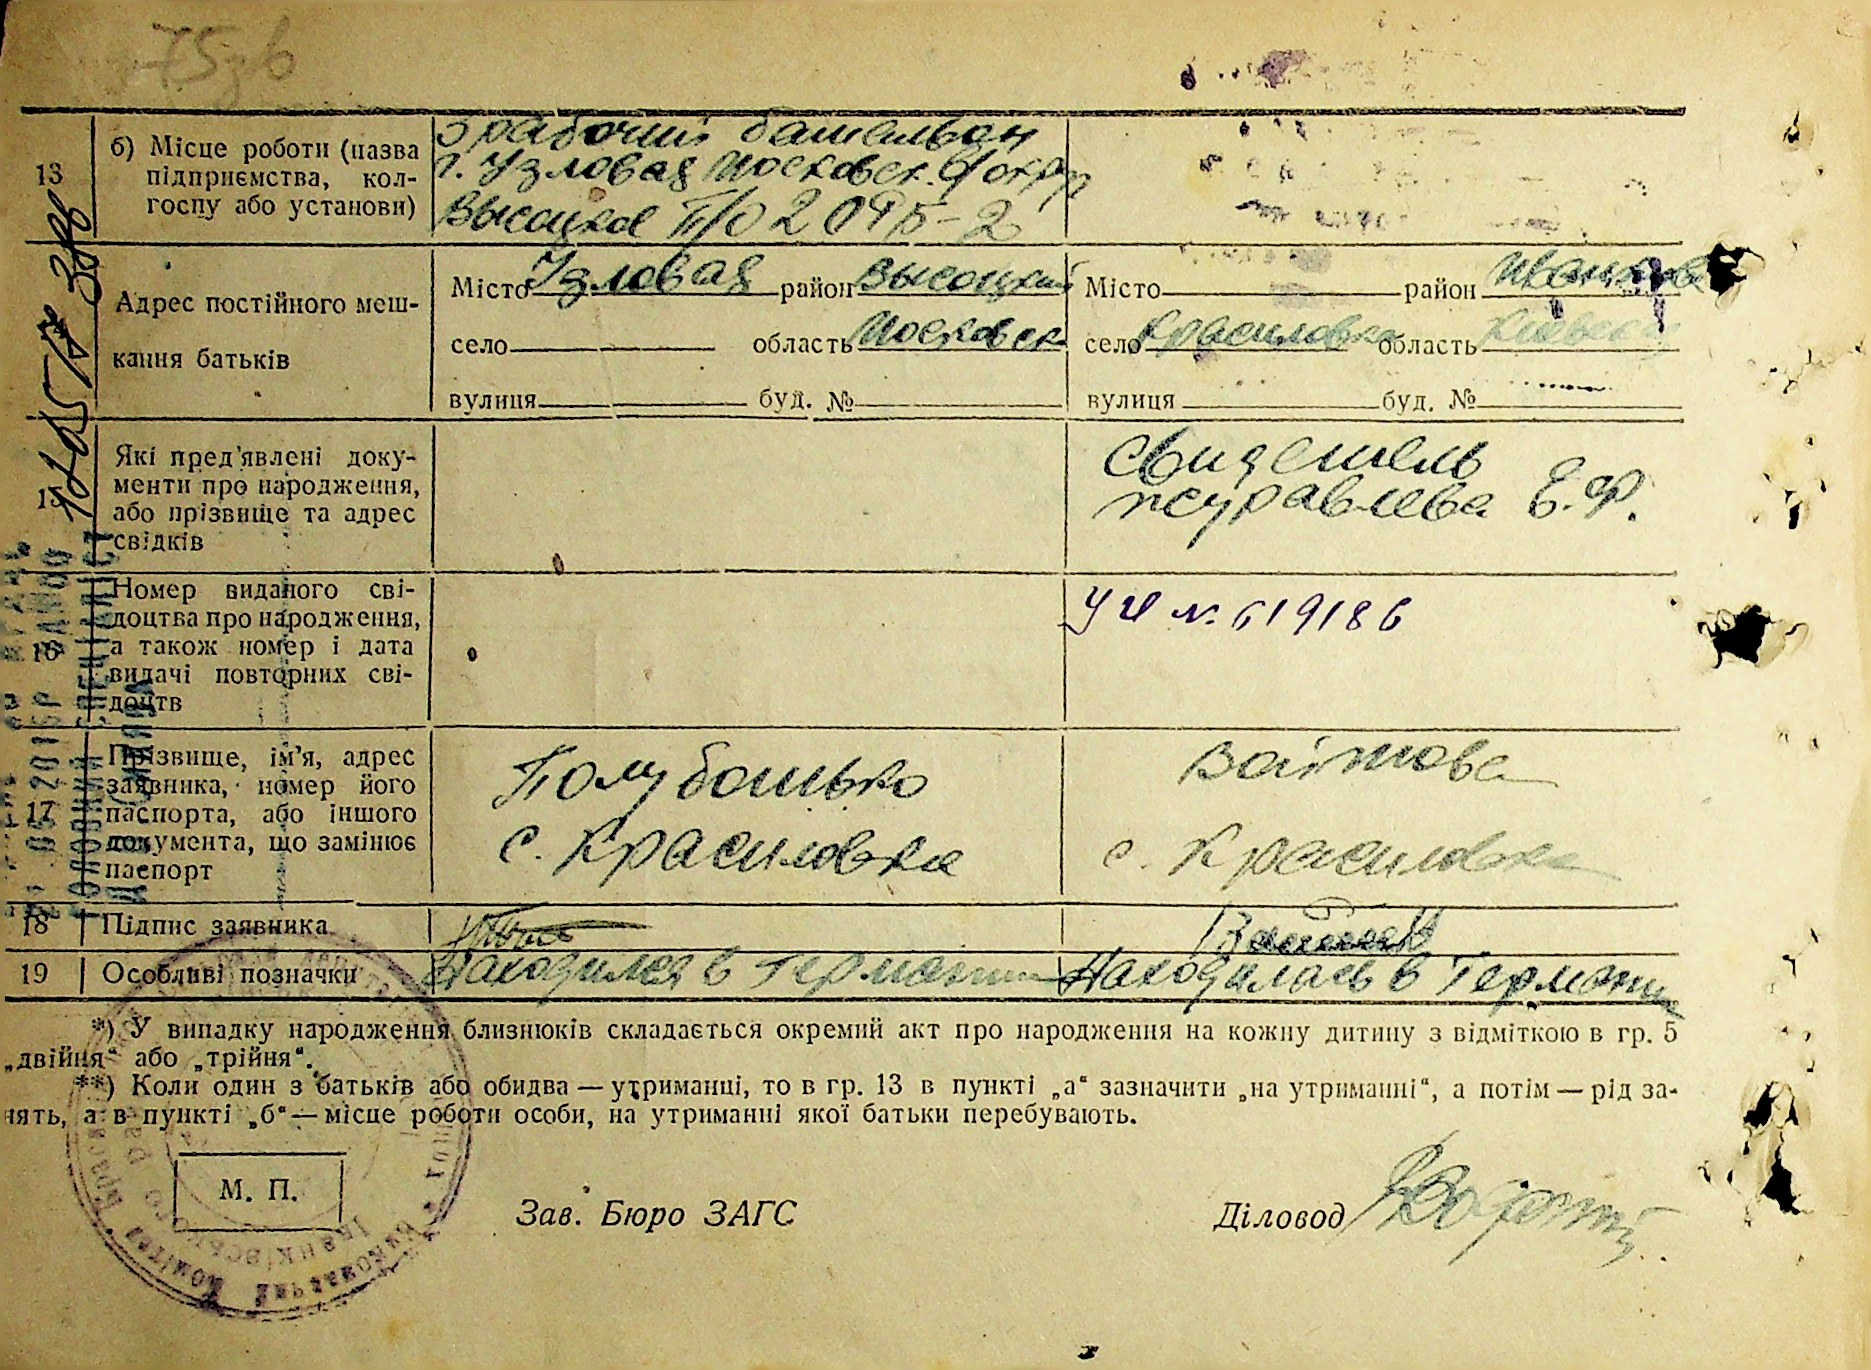 75зв
13
б) Місце роботи (назва
підприємства, кол-
госпу або установи)
рабочий батальон
г. Узловая Московск.
Высоцкое П/О
Адрес постійного меш-
кання батьків
Місто Узловая район Высоцкий
село область Московск
вулиця буд. №
Місто район Иванков
село Красиловка область Киевск
вулиця буд. №
Які пред'явлені доку-
менти про народження,
або прізвище та адрес
свідків
Свидетель
Журавлева Е.Ф.
16
Номер виданого сві-
доцтва про народження,
а також номер і дата
видачі повторних сві-
доцтв
№ 619186
17
Прізвище, ім'я, адрес
заявника, номер його
паспорта, або іншого
документа, що замінює
паспорт
Полубатько
с. Красиловка
Войтова
с. Красиловка
18 Підпис заявника
19 Особливі позначки
Находился в Германии
Находилась в Германии
*) У випадку народження близнюків складається окремий акт про народження на кожну дитину з відміткою в гр. 5
„двійня“ або „трійня“.
**) Коли один з батьків або обидва — утриманці, то в гр. 13 в пункті „а“ зазначити „на утриманні“, а потім — рід за-
нять, а в пункті „б“ — місце роботи особи, на утриманні якої батьки перебувають.
М. П.
Зав. Бюро ЗАГС
Діловод